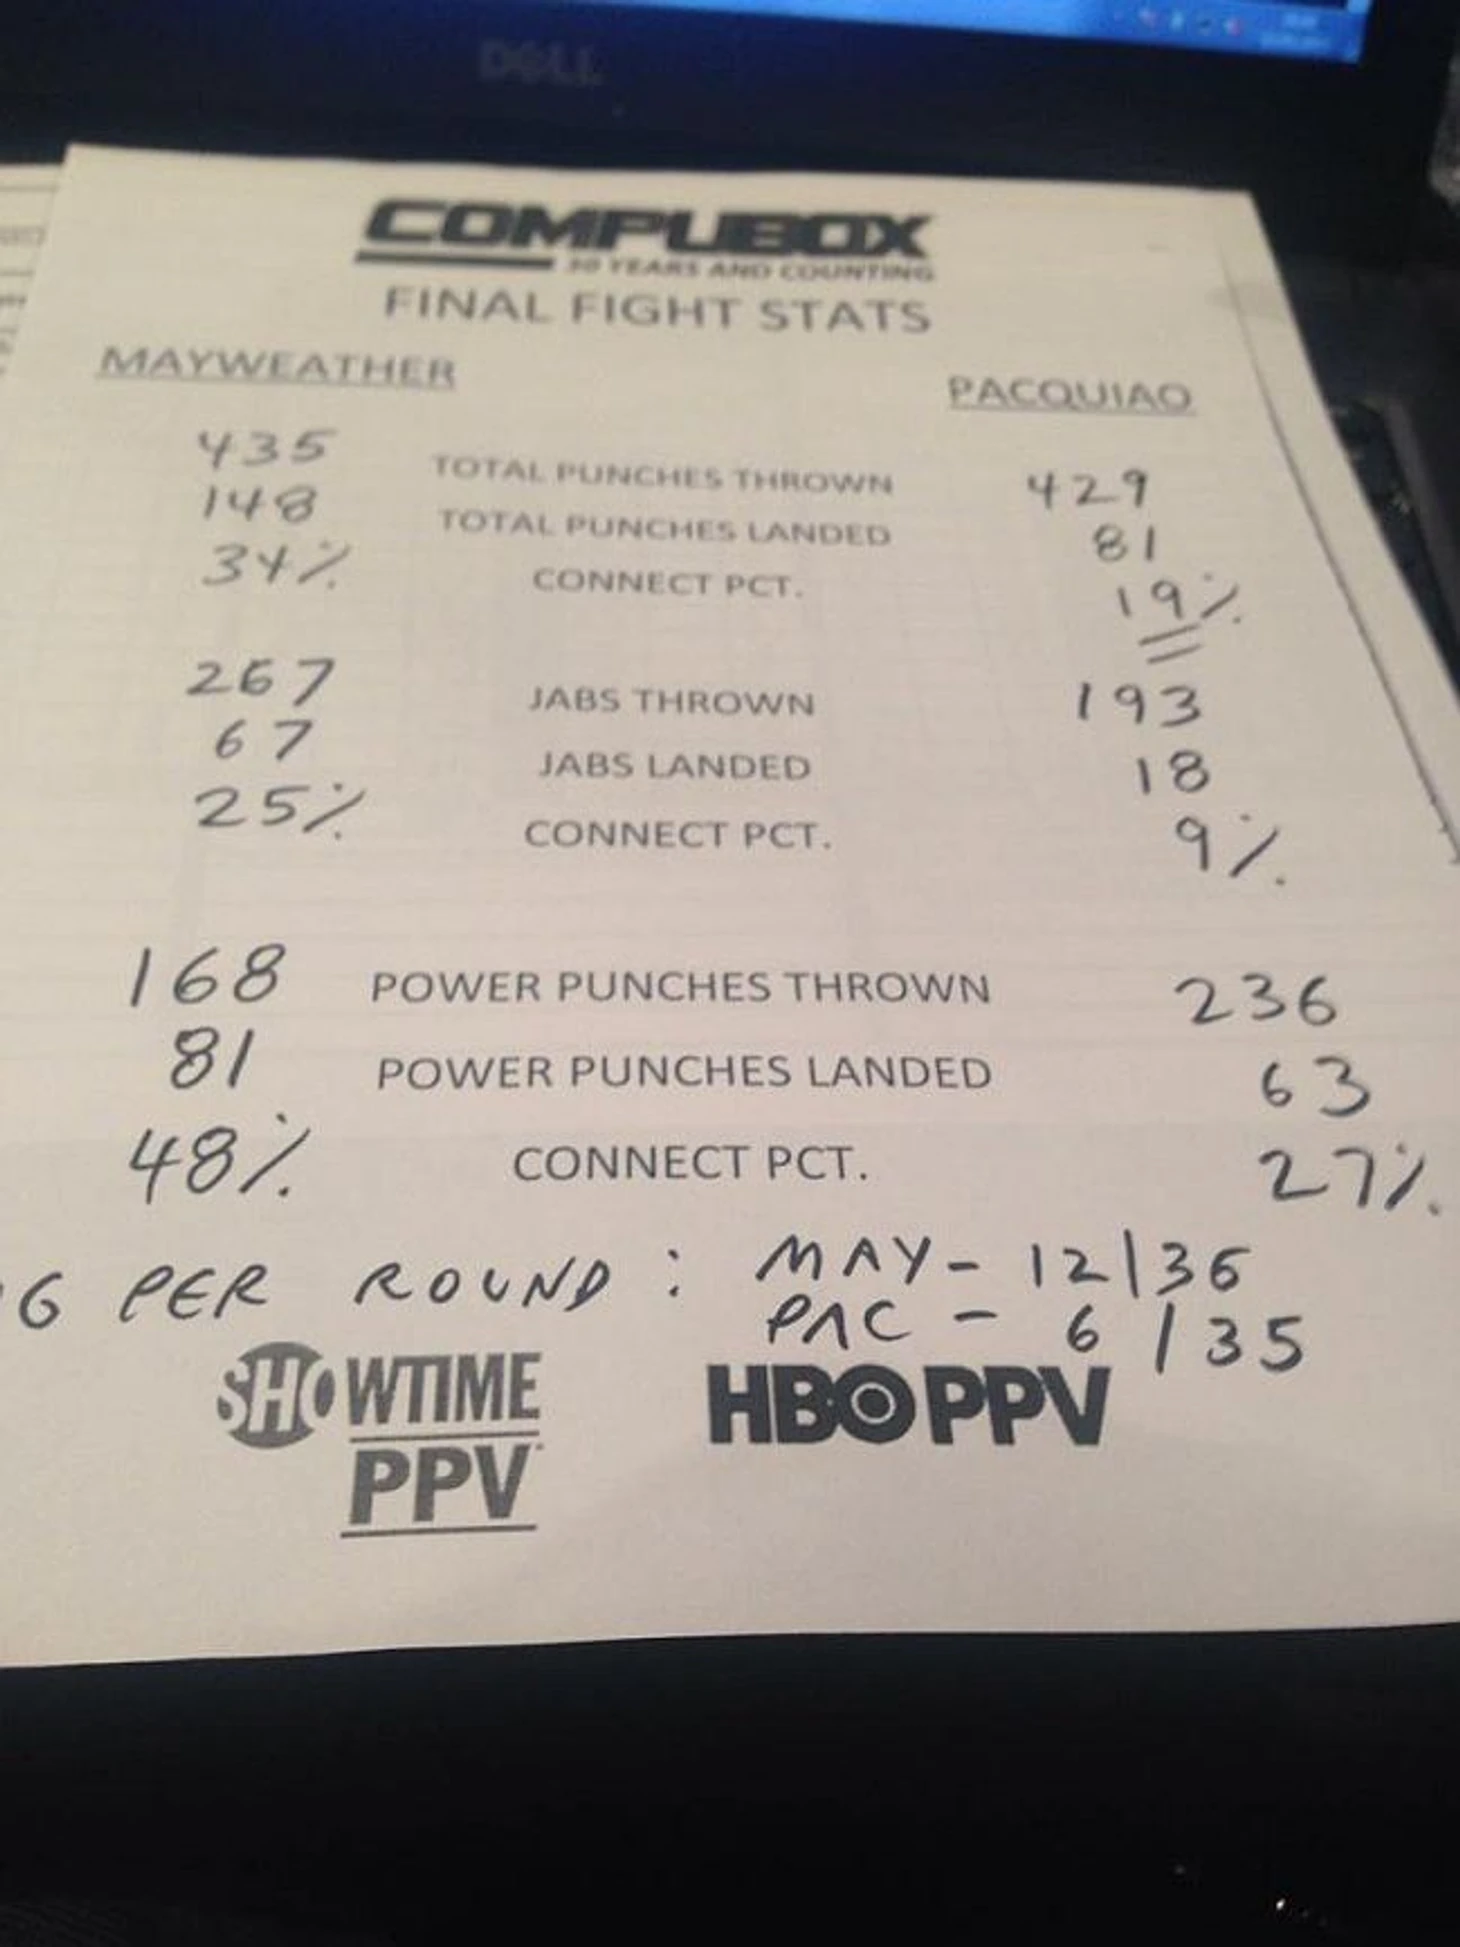 DELL
COMPUBOX
30 YEARS AND COUNTING
FINAL FIGHT STATS
MAYWEATHER PACQUIAO
435 TOTAL PUNCHES THROWN 429
148 TOTAL PUNCHES LANDED 81
34% CONNECT PCT. 19%
267 JABS THROWN 193
67 JABS LANDED 18
25% CONNECT PCT. 9%
168 POWER PUNCHES THROWN 236
81 POWER PUNCHES LANDED 63
48% CONNECT PCT. 27%
G PER ROUND: MAY - 12/36
PAC - 6/35
SHOWTIME HBO PPV
PPV